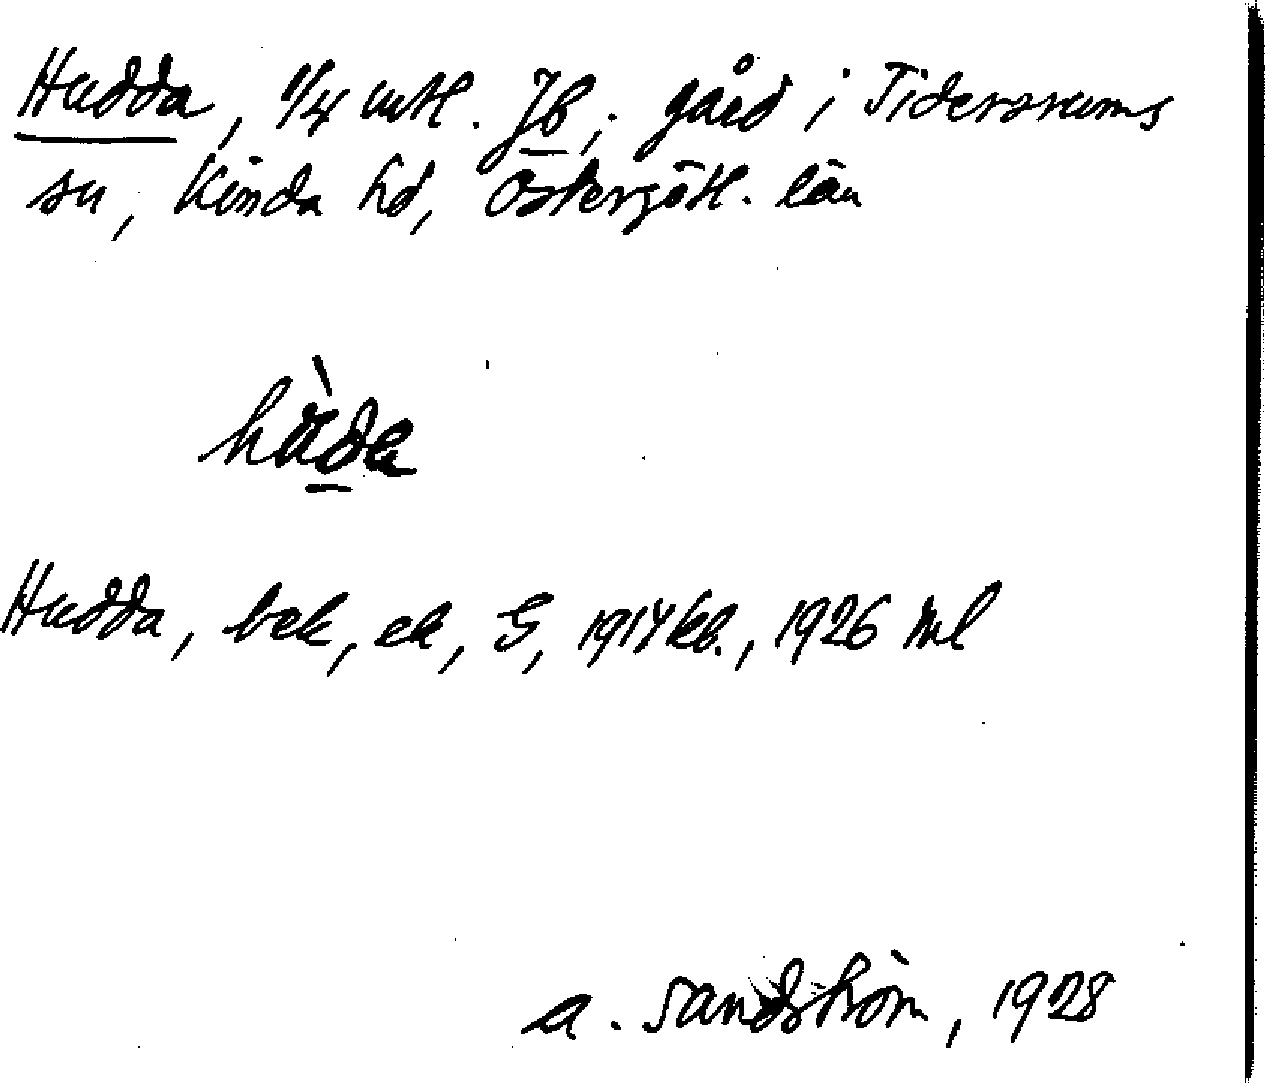 Hudda, 1/4 mtl. Jb, gård i Tidersrums
sn, Kinda hd, Östergötl. län
hùda
Hudda, bek, ek, G, 1914 kb., 1926 ml
A. Sandström, 1928